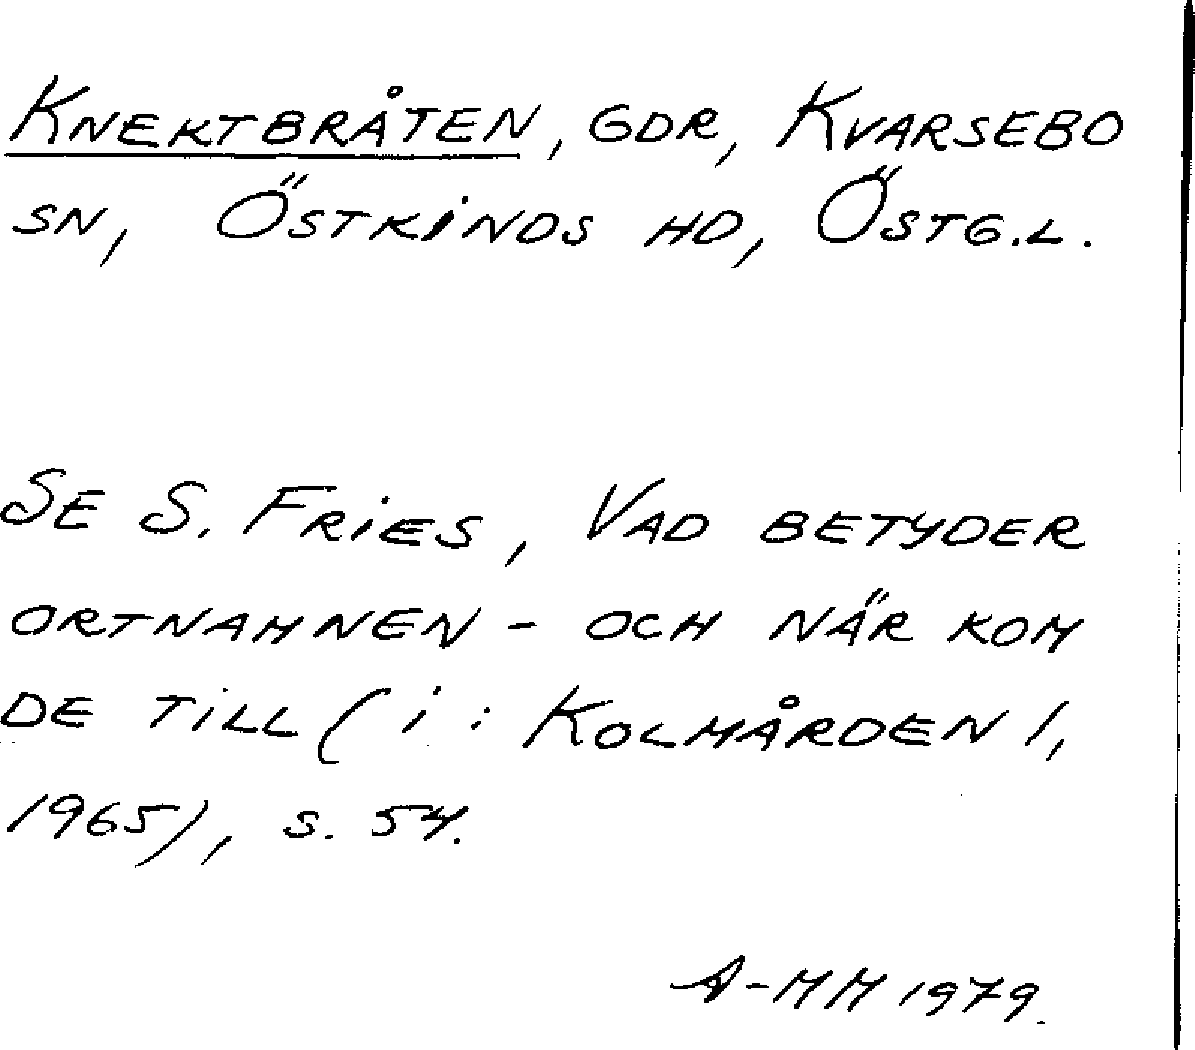 KNEKTBRÅTEN, GDR, KVARSEBO
SN, ÖSTKINDS HD, ÖSTG.L.
SE S. FRIES, VAD BETYDER
ORTNAMNEN - OCH NÄR KOM
DE TILL (I: KOLMÅRDEN 1,
1965), S. 54.
A-MM 1979.